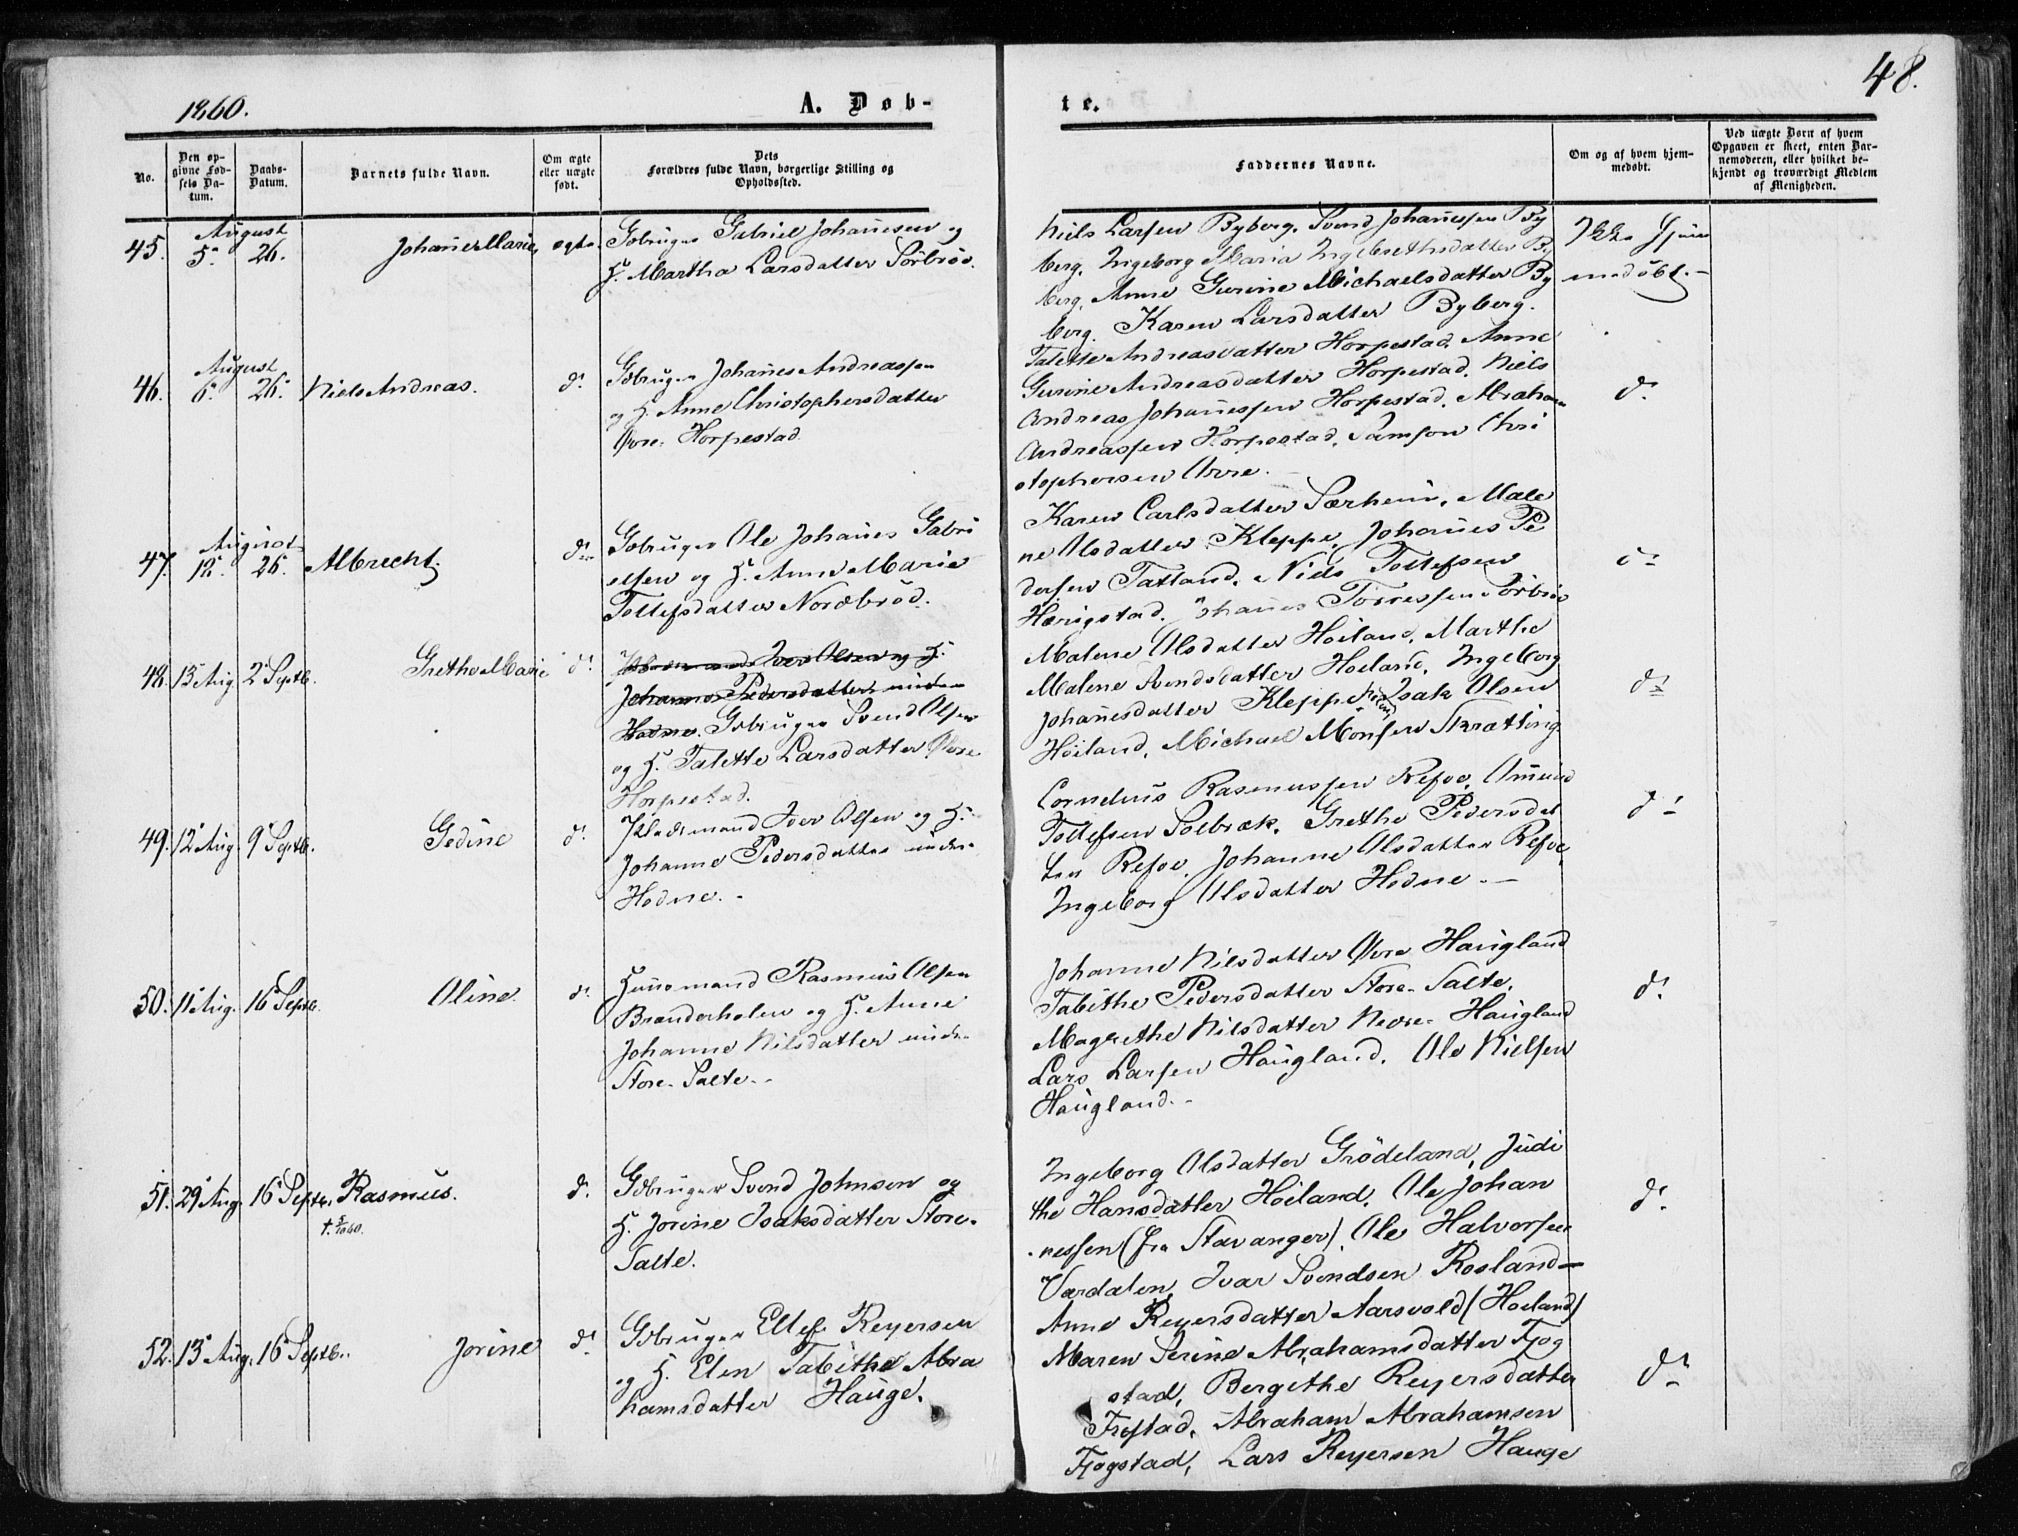 48.
1860.
A. Døb-
te.
No.
Den op-
givne Fød-
sels Da-
tum.
Daabs-
Datum.
Barnets fulde Navn.
Om ægte
eller uægte
født.
Dets
Forældres fulde Navn, borgerlige Stilling og
Opholdssted.
Faddernes Navne.
Om og af hvem hjem-
medøbt.
Ved uægte Børn af hvem
Opgaven er skeet, enten Bar-
nemoderen, eller hvilket be-
kjendt og troværdigt Medlem
af Menigheden.
August
45. 5. 26. Johanne Marie, ægte.
Gbruger Gabriel Johannesen og
H. Martha Larsdatter Sörbröd.
Niels Larsen Byberg, Svend Johannessen By
berg, Ingeborg Maria Ingebrethsdatter By
berg, Anne Gurine Michaelsdatter By
berg. Karen Larsdatter Byberg.
Ikke hjem
medöbt.-
August
46. 6. 26. Niels Andreas. d.
Gbruger Johannes Andreassen
og H. Anne Christophersdatter
Øvre Horpestad.
Talette Andreasdatter Horpestad, Anne
Gurine Andreasdatter Horpestad. Niels
Andreas Johannessen Horpestad. Abraham
Andreassen Horpestad, Samson Chri
stophersen Orre.
d.
August
47. 12. 26. Albrecht. d.
Gbruger Ole Johannes Gabri
elsen og H. Anne Marie
Tollefsdatter Nordbröd.
Karen Carlsdatter Særheim, Male
ne Olsdatter Kleppe, Johannes Pe
dersen Tatland, Niels Tollefsen
Hærigstad. Johannes Törressen Sörbröd
d.
48. 13 Aug. 2 Septb. Grethe Marie d.
Pladsmand Iver Olsen og H.
Johanne Pedersdatter under
Hodne. Gbruger Svend Olsen
og H. Talette Larsdatter Øvre
Horpestad.
Malene Olsdatter Höiland, Marthe
Malene Svendsdatter Höiland, Ingeborg
Johannesdatter Kleppe, Isak Olsen
Höiland, Michael Monsen Skratting
d.
49. 12 Aug. 9 Septb. Gedine d.
Pladsmand Iver Olsen og H.
Johanne Pedersdatter under
Hodne.
Cornelius Rasmussen Refve, Omund
Tollefsen Solbræk, Grethe Pedersdat
ter Refve, Johanne Olsdatter Refve,
Ingeborg Olsdatter Hodne.
d.
50. 11 Aug. 16 Septb. Oline d.
Huusmand Rasmus Olsen
Brænderholen og H. Anne
Johanne Nilsdatter under
Store-Salte.
Johanne Nilsdatter Øvre Haugland
Tabithe Pedersdatter Store-Salte,
Magrethe Nilsdatter Nedre-Haugland
Lars Larsen Haugland. Ole Nielsen
Haugland.
d.
51. 29 Aug. 16 Septbr. Rasmus. d.
†. 5/10 60.
Gbruger Svend Johnsen og
H. Jorine Isaksdatter Store-
Salte.
Ingeborg Olsdatter Grödeland, Judi
the Hansdatter Höiland. Ole Johan
nessen (fra Stavanger), Ole Halvorsen
Værdalen, Ivar Svendsen Rosland
d.
52. 13 Aug. 16 Septb. Jorine d.
Gbruger Ellef Reyersen
og H. Elen Tabithe Abra
hamsdatter Hauge.
Anne Reyersdatter Aarsvold (Höiland)
Maren Serine Abrahamsdatter Fjog
stad, Bergithe Reyersdatter
Frøstad, Abraham Abrahamsen
Fjogstad, Lars Reyersen Hauge
d.